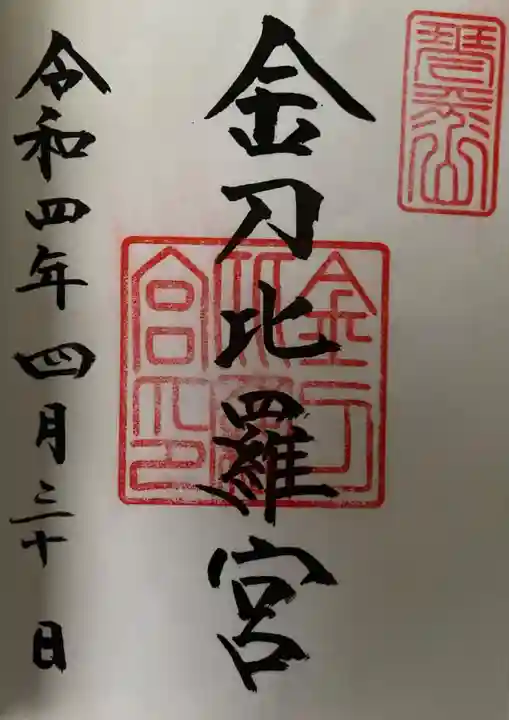 琴平山
金刀比羅宮
金刀比羅宮印
令和四年四月三十日